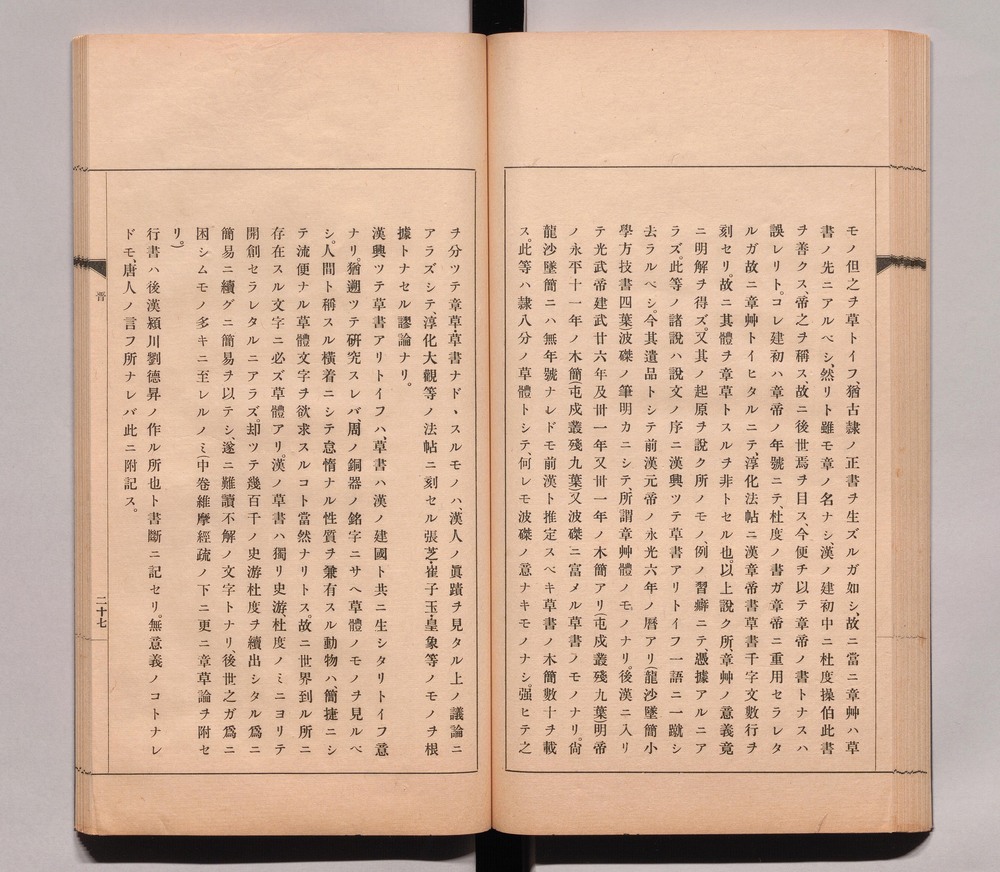 モノ但之ヲ草トイフ、猶古隷ノ正書ヲ生ズルガ如シ、故ニ當ニ章艸ハ草
書ノ先ニアルベシ、然リト雖モ章ノ名ナシ、漢ノ建初中ニ杜度操伯此書
ヲ善クス、帝之ヲ稱ス、故ニ後世焉ヲ目ス、今便チ以テ章帝ノ書トナスハ
誤レリト。コレ建初ハ章帝ノ年號ニテ、杜度ノ書ガ章帝ニ重用セラレタ
ルガ故ニ章艸トイヒタルニテ、淳化法帖ニ漢章帝書草書千字文數行ヲ
刻セリ。故ニ其體ヲ章草トスルヲ非トセル也。以上說ク所、章艸ノ意義竟
ニ明解ヲ得ズ。又其ノ起原ヲ說ク所ノモノ、例ノ習癖ニテ、憑據アルニア
ラズ。此等ノ諸說ハ說文ノ序ニ漢興ツテ草書アリトイフ一語ニ一蹴シ
去ラルベシ。今其遺品トシテ前漢元帝ノ永光六年ノ曆アリ(龍沙墜簡小
學方技書四葉)波磔ノ筆明カニシテ、所謂章艸體ノモノナリ。後漢ニ入リ
テ光武帝建武廿六年及卅一年又卅一年ノ木簡アリ(屯戍叢殘九葉)明帝
ノ永平十一年ノ木簡(屯戍叢殘九葉)又波磔ニ富メル草書ヲモノナリ。尙
龍沙墜簡ニハ無年號ナレドモ前漢ト推定スベキ草書ノ木簡數十ヲ載
ス。此等ハ隷八分ノ草體トシテ、何レモ波磔ノ意ナキモノナシ。强ヒテ之
ヲ分ツテ章草、草書ナドヽスルモノハ、漢人ノ眞蹟ヲ見タル上ノ議論ニ
アラズシテ、淳化大觀等ノ法帖ニ刻セル張芝、崔子玉、皇象等ノモノヲ根
據トナセル謬論ナリ。
漢興ツテ草書アリトイフハ、草書ハ漢ノ建國ト共ニ生シタリトイフ意
ナリ。猶遡ツテ研究スレバ、周ノ銅器ノ銘字ニサヘ草體ノモノヲ見ルベ
シ。人間ト稱スル橫着ニシテ怠惰ナル性質ヲ兼有スル動物ハ、簡捷ニシ
テ流便ナル草體文字ヲ欲求スルコト當然ナリトス。故ニ世界到ル所ニ
存在スル文字ニ必ズ草體アリ。漢ノ草書ハ獨リ史游、杜度ノミニヨリテ
開創セラレタルニアラズ。却ツテ幾百千ノ史游杜度ヲ續出シタル爲ニ
簡易ニ續グニ簡易ヲ以テシ、遂ニ難讀不解ノ文字トナリ、後世之ガ爲ニ
困シムモノ多キニ至レルノミ(中卷維摩經疏ノ下ニ更ニ章草論ヲ附セ
リ。)
行書ハ後漢潁川劉德昇ノ作ル所也ト書斷ニ記セリ。無意義ノコトナレ
ドモ、唐人ノ言フ所ナレバ此ニ附記ス。
晋
二十七